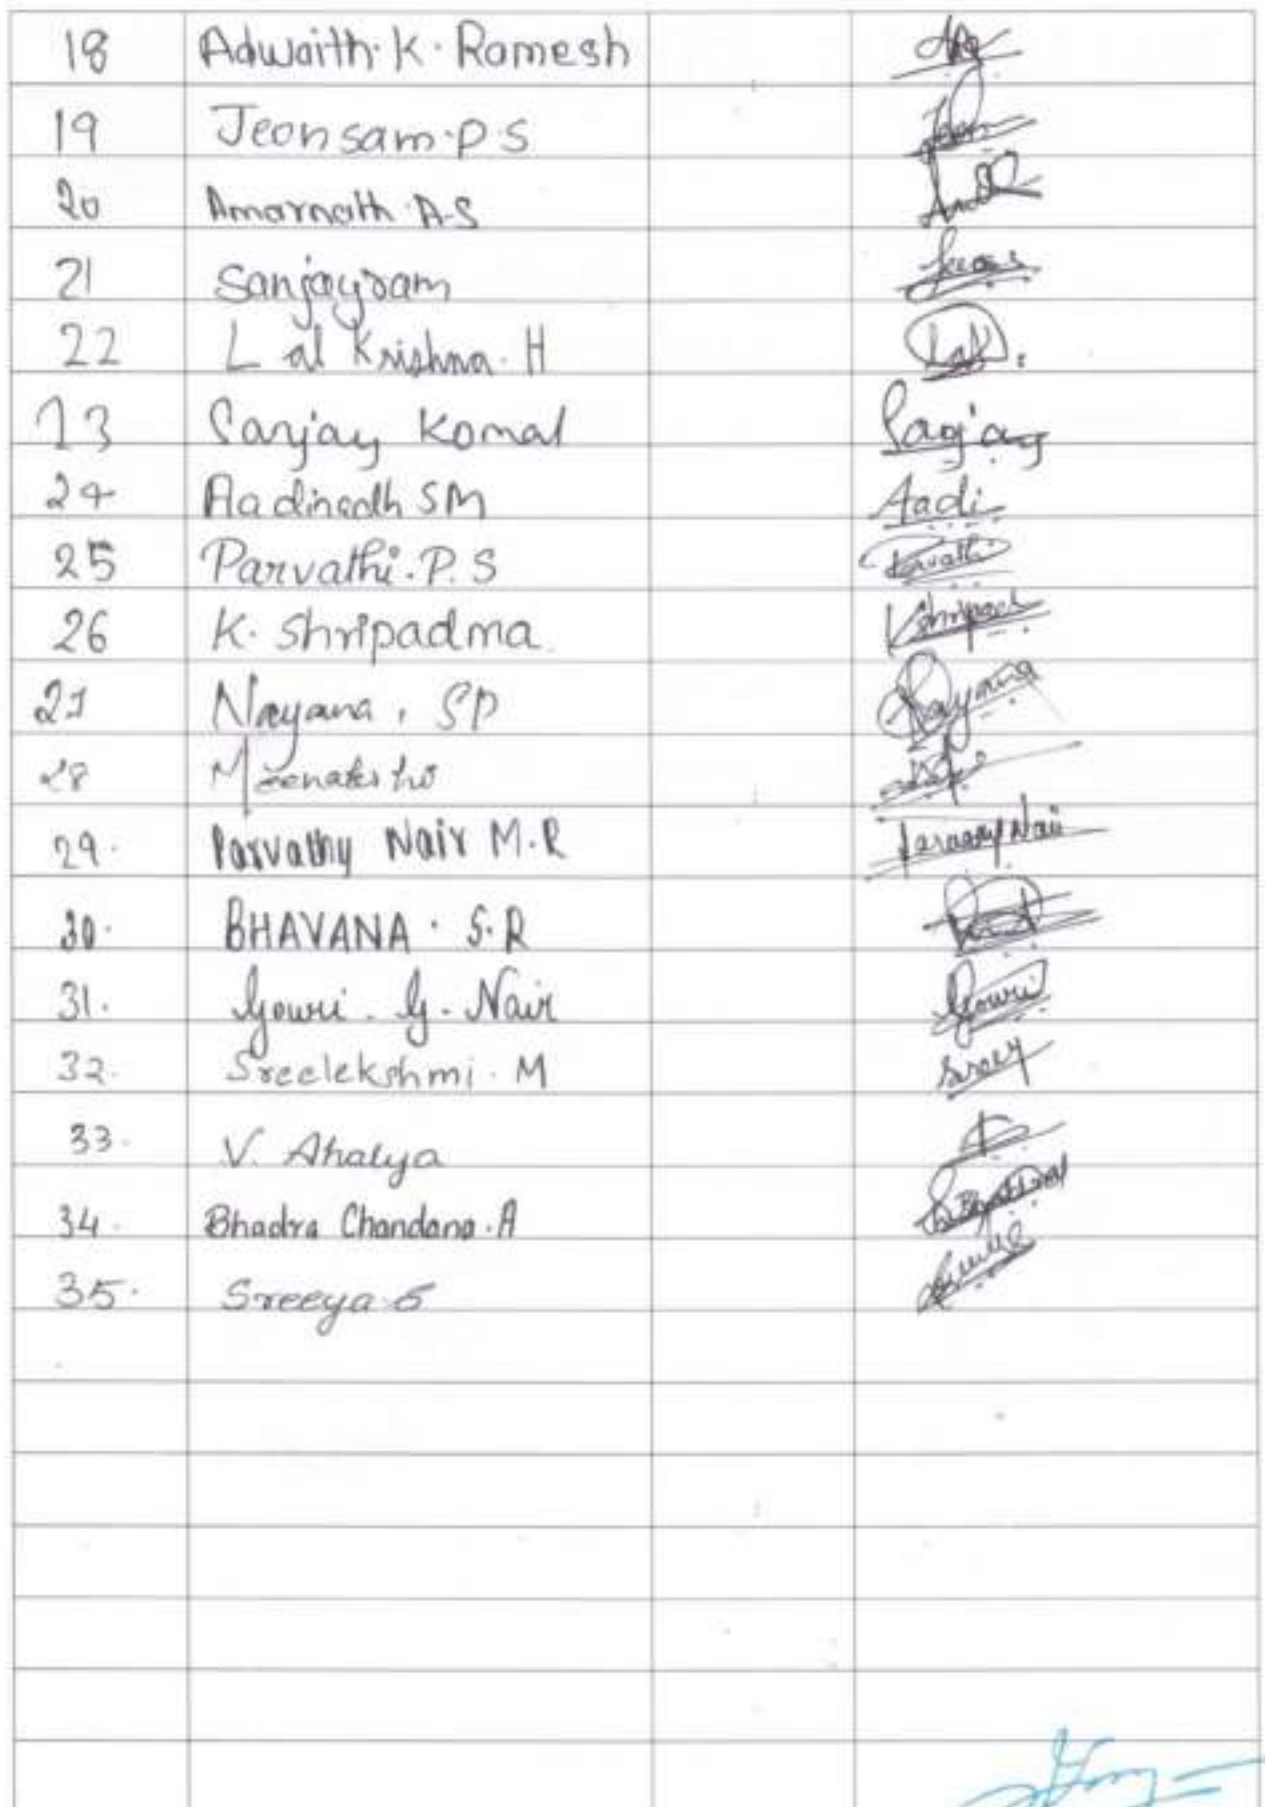 18 Adwaith.K. Ramesh
19 Jeonsam.P.S
20 Amarnath.A.S
21 Sanjayram
22 Lal Krishna.H
23 Sanjay Komal Sanjay
24 Aadinadh SM Aadi
25 Parvathi.P.S Parvathi
26 K. Shripadma. KShripad
27 Nayana, SP Nayana
28 Meenakshi
29. Parvathy Nair M.R Parvathy Nair
30. BHAVANA . S.R
31. Gowri. G. Nair Gowri
32. Sreelekshmi. M
33. V. Ahalya
34. Bhadra Chandana.A
35. Sreeya.S